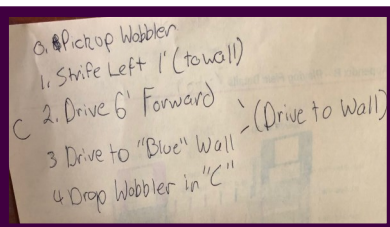 0. Pickup Wobbler
1. Strife Left 1' (to wall)
C 2. Drive 6' Forward
(Drive to Wall)
3 Drive to "Blue" Wall
4 Drop Wobbler in "C"